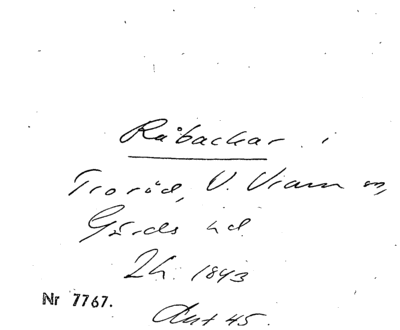 Råbackar i
Troröd, V. Vram sn,
Gärds hd.
Lh. 1843
Nr 7767.
Ant 45.